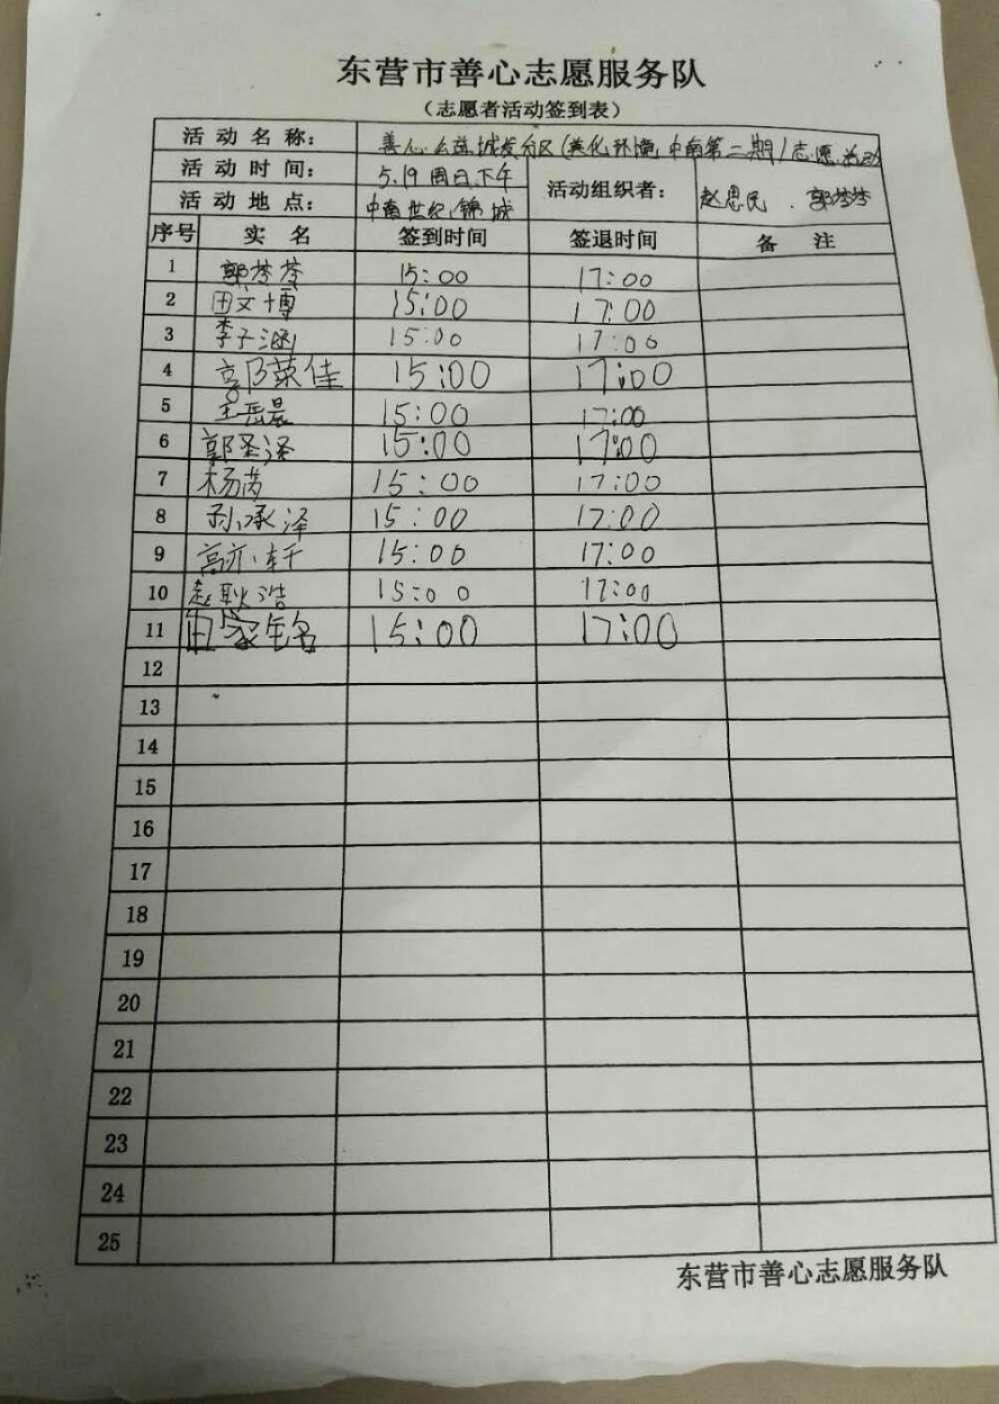 东营市善心志愿服务队
（志愿者活动签到表）
活动名称： 善心公益城发分区(美化环境,中南第二期)志愿活动
活动时间： 5.19周日下午 活动组织者： 赵恩民 . 郭梦梦
活动地点： 中南世纪锦城
序号 实名 签到时间 签退时间 备注
1 15:00 17:00
2 田文博 15:00 17:00
3 李子涵 15:00 17:00
4 郭菜佳 15:00 17:00
5 王岳晨 15:00 17:00
6 郭圣泽 15:00 17:00
7 杨芮 15:00 17:00
8 孙承泽 15:00 17:00
9 高亦轩 15:00 17:00
10 赵耿浩 15:00 17:00
11 田家铭 15:00 17:00
12
13
14
15
16
17
18
19
20
21
22
23
24
25
东营市善心志愿服务队